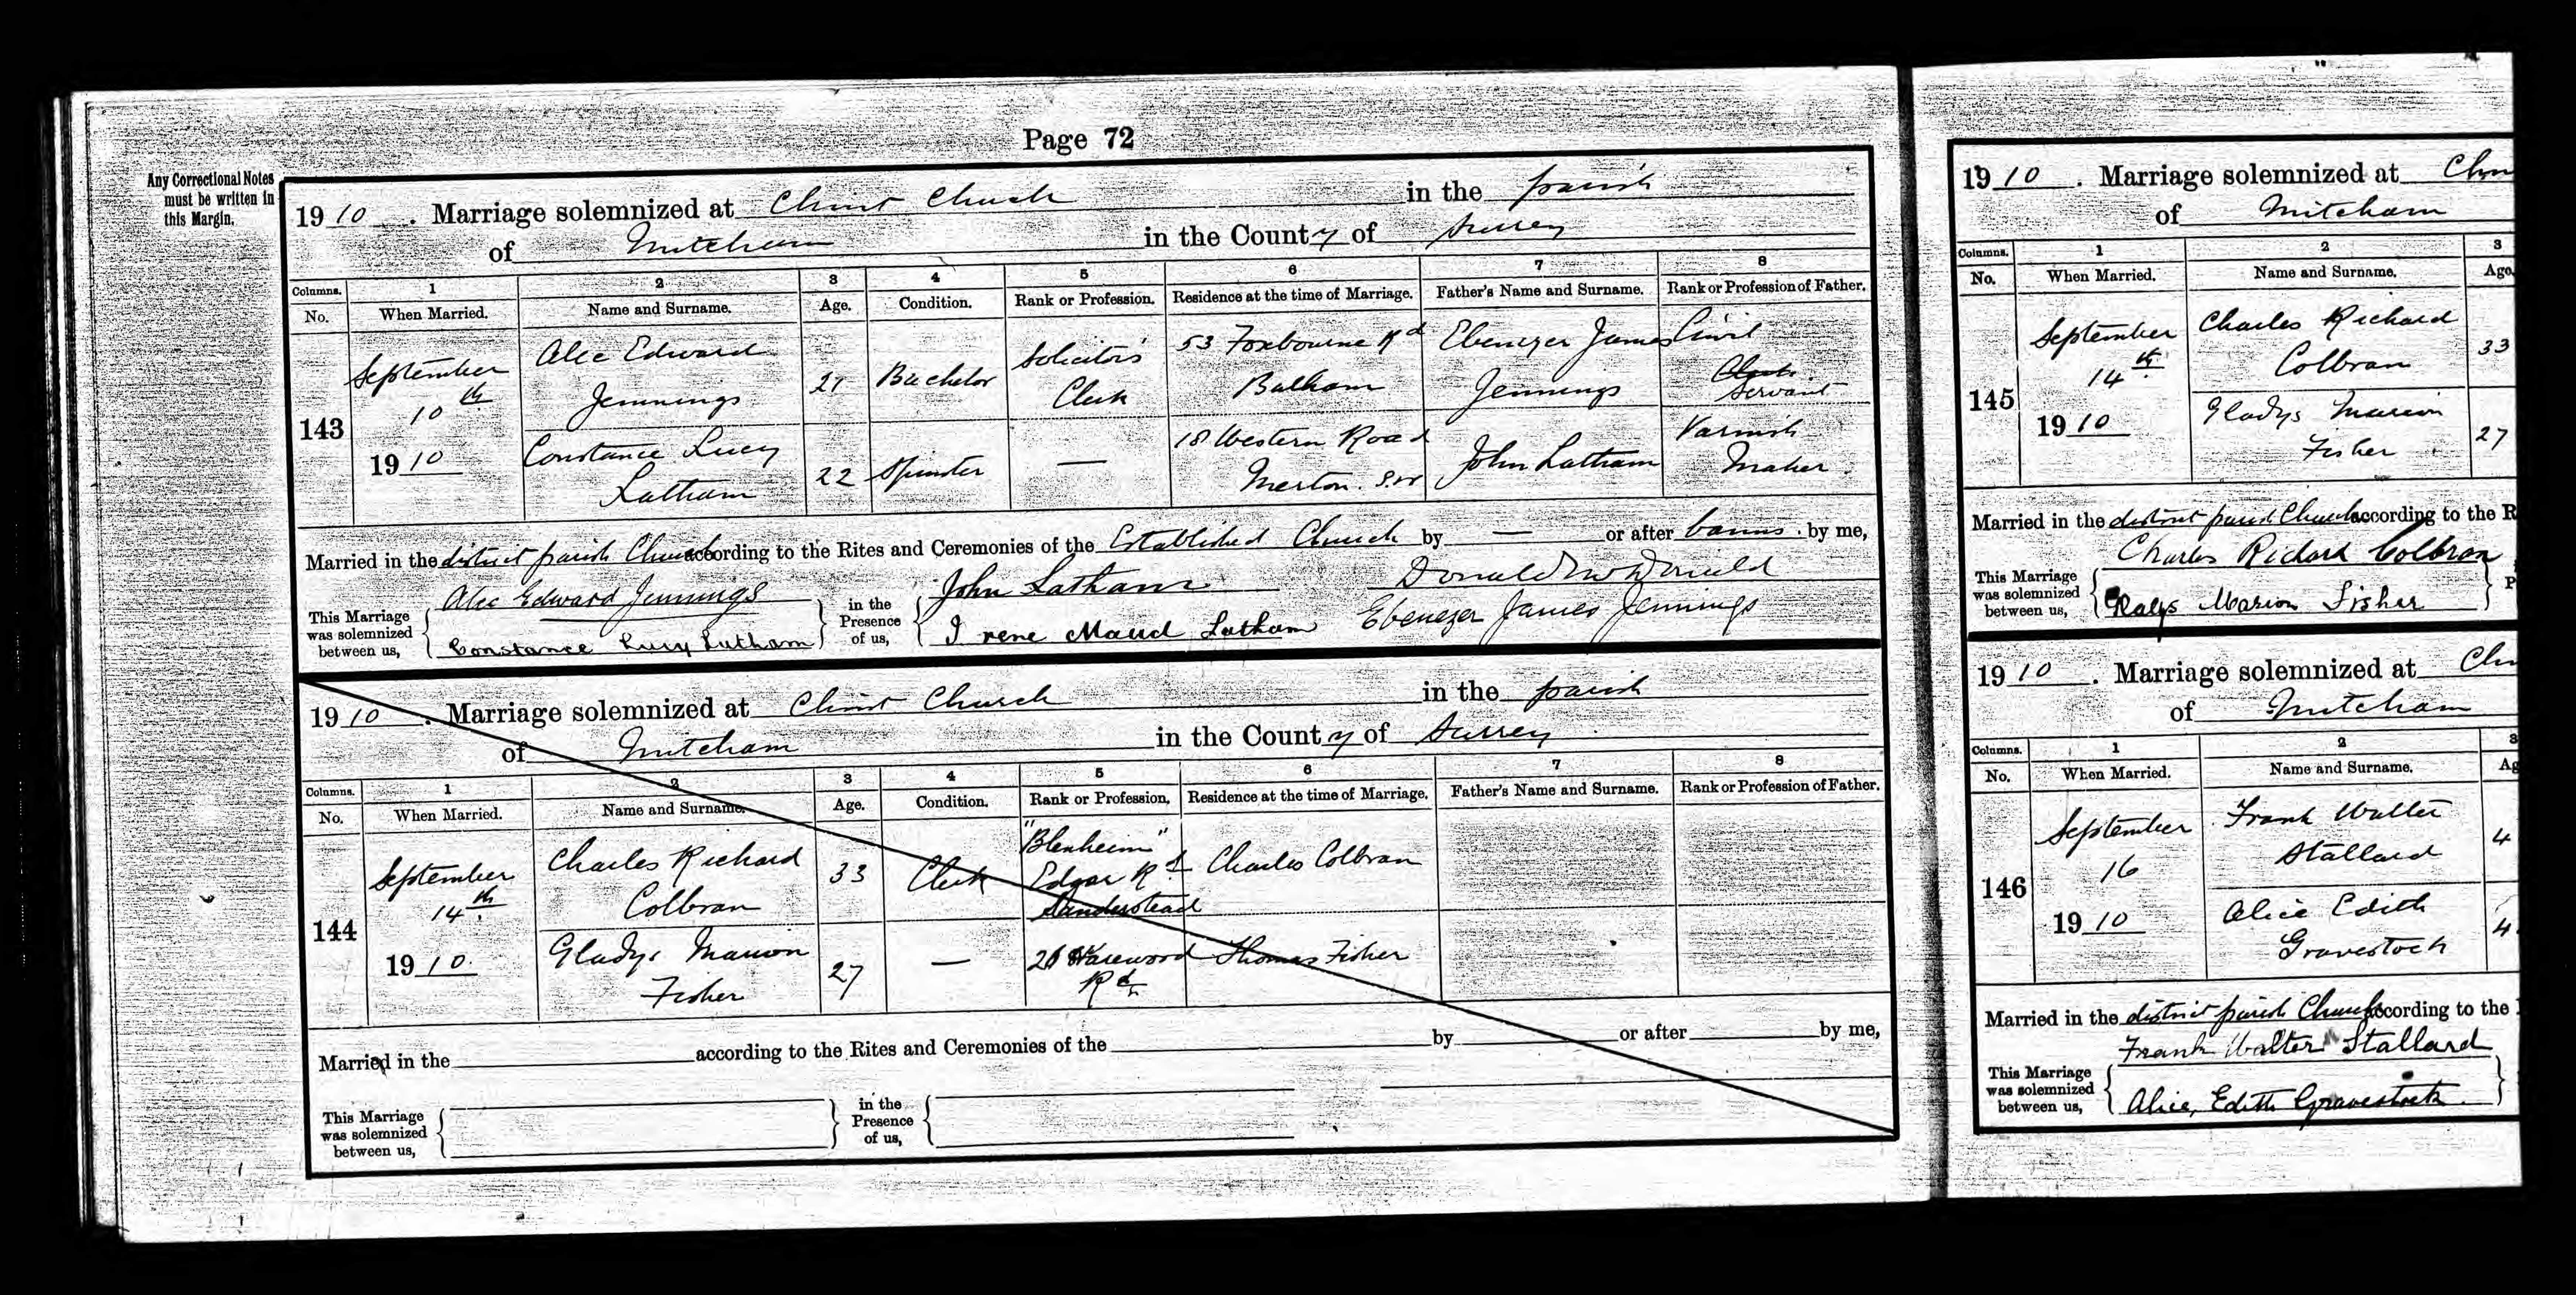 Page 72
Any Correctional Notes
must be written in
this Margin.
1910. Marriage solemnized at Christ Church in the parish
of Mitcham in the County of Surrey
Columns. 1 2 3 4 5 6 7 8
No. When Married. Name and Surname. Age. Condition. Rank or Profession. Residence at the time of Marriage. Father's Name and Surname. Rank or Profession of Father.
143
September
10th
1910
Alec Edward
Jennings
21
Bachelor
Solicitor's
Clerk
53 Foxbourne Rd
Balham
Ebenezer James
Jennings
Civil
Clerk
Servant
Constance Lucy
Latham
22
Spinster
—
18 Western Road
Merton. S.W
John Latham
Varnish
Maker.
Married in the district parish Church according to the Rites and Ceremonies of the Established Church by — or after banns by me,
Donald
This Marriage
was solemnized
between us,
Alec Edward Jennings
Constance Lucy Latham
in the
Presence
of us,
John Latham
Irene Maud Latham Ebenezer James Jennings
1910. Marriage solemnized at Christ Church in the parish
of Mitcham in the County of Surrey
Columns. 1 2 3 4 5 6 7 8
No. When Married. Name and Surname. Age. Condition. Rank or Profession. Residence at the time of Marriage. Father's Name and Surname. Rank or Profession of Father.
144
September
14th
1910.
Charles Richard
Colbran
33
Clerk
"Blenheim"
Edgar Rd
Sanderstead
Charles Colbran
Gladys Marion
Fisher
27
—
Harewood
Rd
Thomas Fisher
Married in the according to the Rites and Ceremonies of the by or after by me,
This Marriage
was solemnized
between us,
in the
Presence
of us,
1910. Marriage solemnized at Chri
of Mitcham
Columns. 1 2 3
No. When Married. Name and Surname. Age.
145
September
14th
1910
Charles Richard
Colbran
33
Gladys Marion
Fisher
27
Married in the district parish Church according to the R
This Marriage
was solemnized
between us,
Charles Richard Colbran
Gladys Marion Fisher
P
1910. Marriage solemnized at Chr
of Mitcham
Columns. 1 2 3
No. When Married. Name and Surname. Ag
146
September
16
1910
Frank Walter
Stallard
4
Alice Edith
Gravestock
4
Married in the district parish Church according to the
This Marriage
was solemnized
between us,
Frank Walter Stallard
Alice, Edith Gravestock.